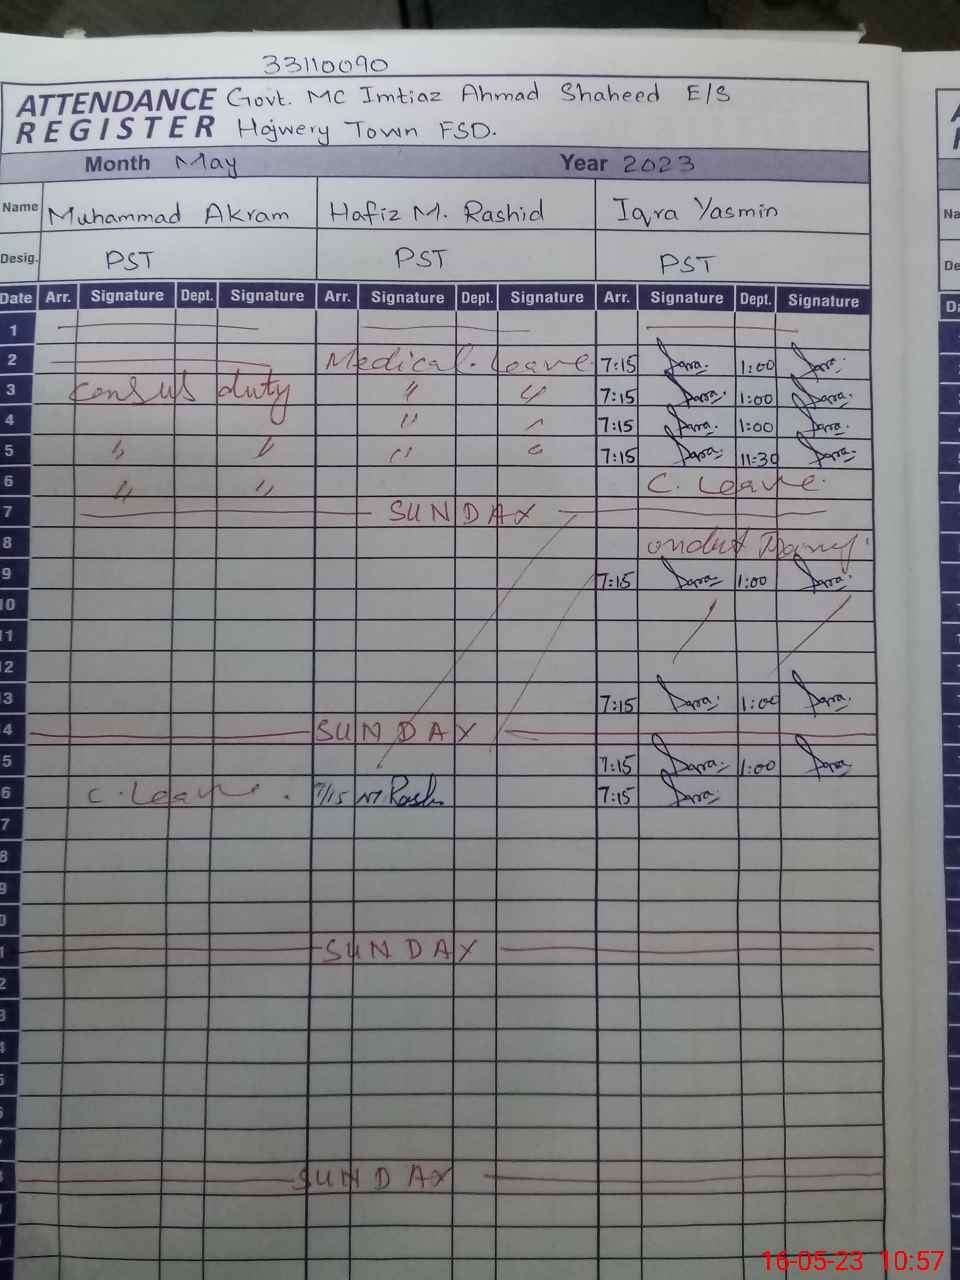 33110090
ATTENDANCE REGISTER Govt. MC Imtiaz Ahmad Shaheed E/S
Hajwery Town FSD.
Month May Year 2023
Name Muhammad Akram Hafiz M. Rashid Iqra Yasmin
Desig. PST PST PST
Date Arr. Signature Dept. Signature Arr. Signature Dept. Signature Arr. Signature Dept. Signature
1
2 Medical Leave 7:15 1:00
3 Census duty " " 7:15 1:00
4 " " 7:15 1:00
5 " " " " 7:15 11:30
6 " " C. Leave
7 SUNDAY
8
9 7:15 1:00
10
11
12
13 7:15 1:00
4 SUNDAY
5 7:15 1:00
6 C. Leave 7/15 M Rash 7:15
7
8
9
0
1 SUNDAY
2
3
4
5
SUNDAY
16-05-23 10:57